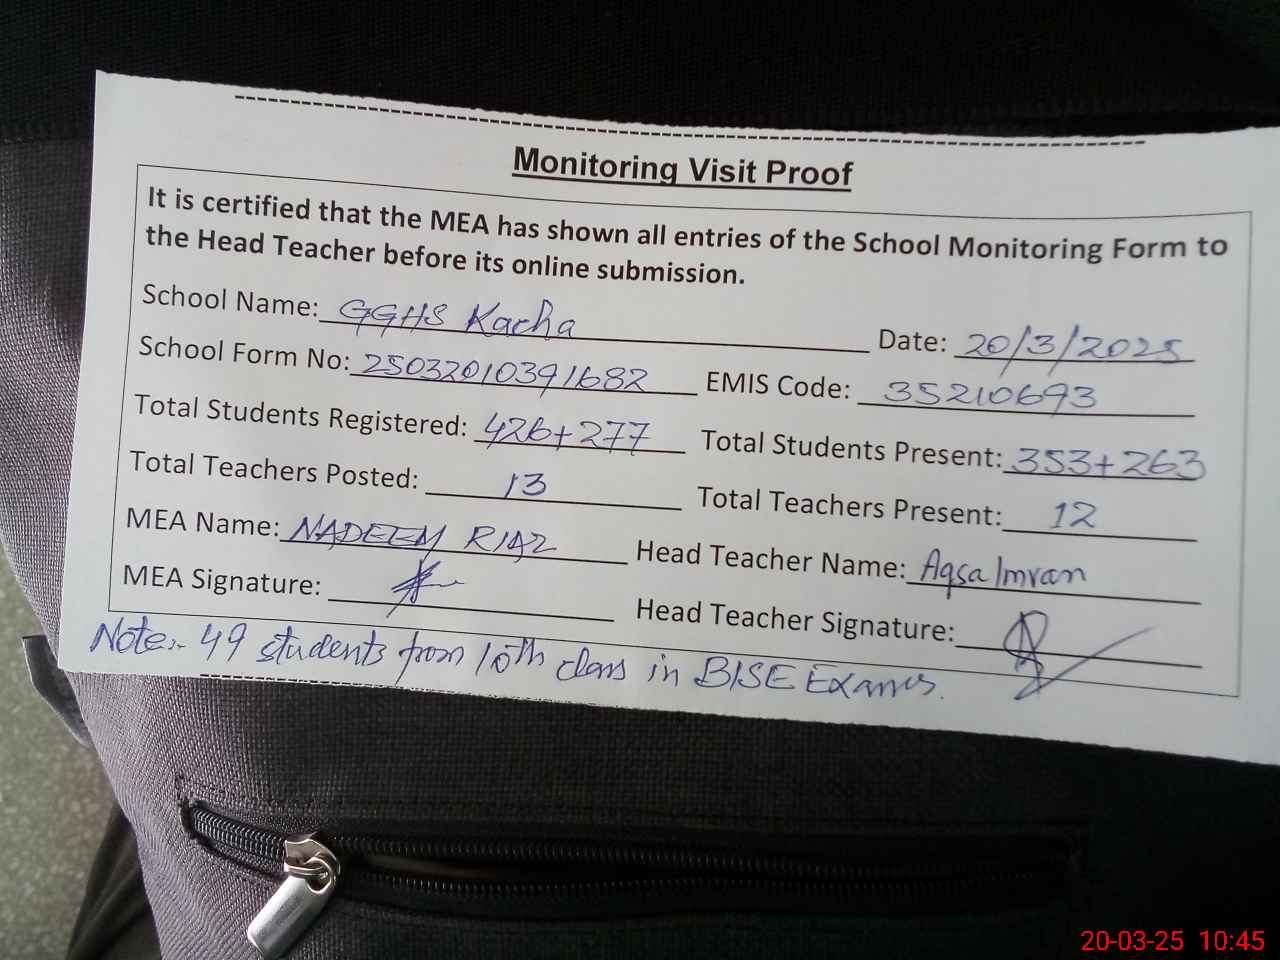 Monitoring Visit Proof
It is certified that the MEA has shown all entries of the School Monitoring Form to
the Head Teacher before its online submission.
School Name: GGHS Kacha Date: 20/3/2025
School Form No: 25032010391682 EMIS Code: 35210693
Total Students Registered: 426+277 Total Students Present: 353+263
Total Teachers Posted: 13 Total Teachers Present: 12
MEA Name: NADEEM RIAZ Head Teacher Name: Aqsa Imran
MEA Signature: Head Teacher Signature:
Note:- 49 students from 10th class in BISE Exams.
20-03-25 10:45